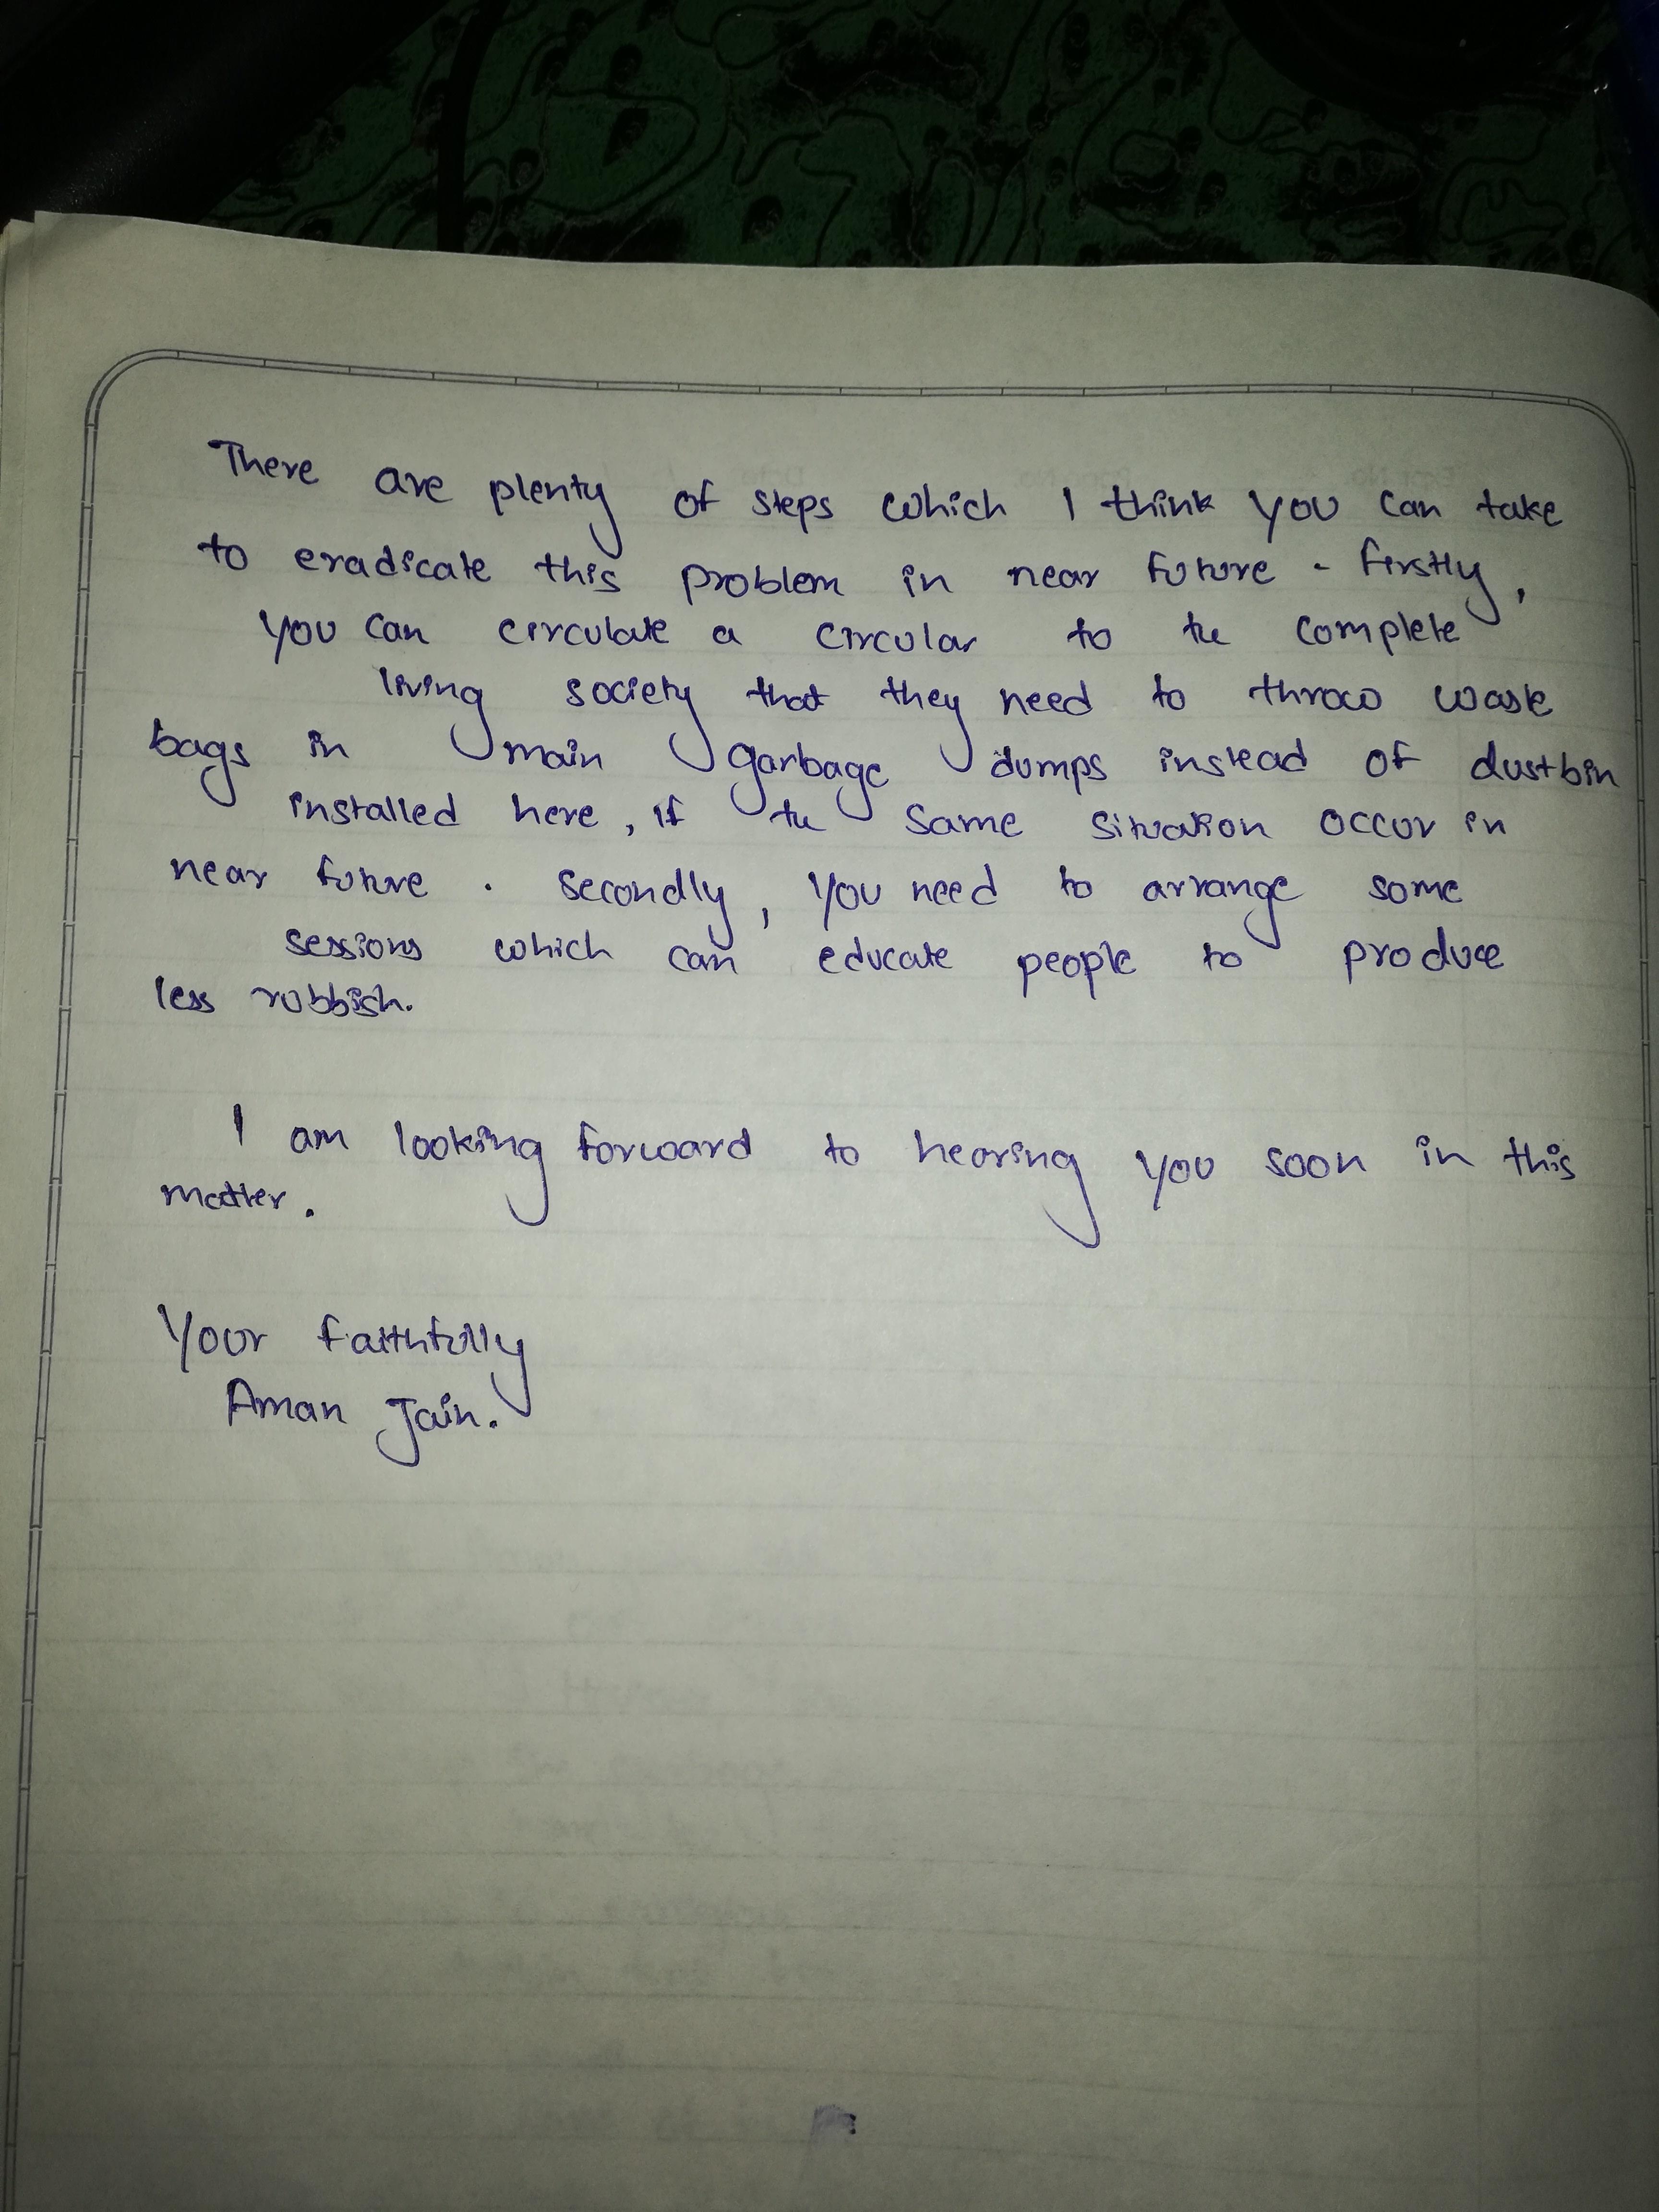 There are plenty of steps which I think you can take
to eradicate this problem in near future. firstly,
you can circulate a circular to the complete
living society that they need to throw waste
bags in main garbage dumps instead of dustbin
installed here, if the same situation occur in
near future. secondly, you need to arrange some
sessions which can educate people to produce
less rubbish.
I am looking forward to hearing you soon in this
matter.
Your faithfully
Aman Jain.